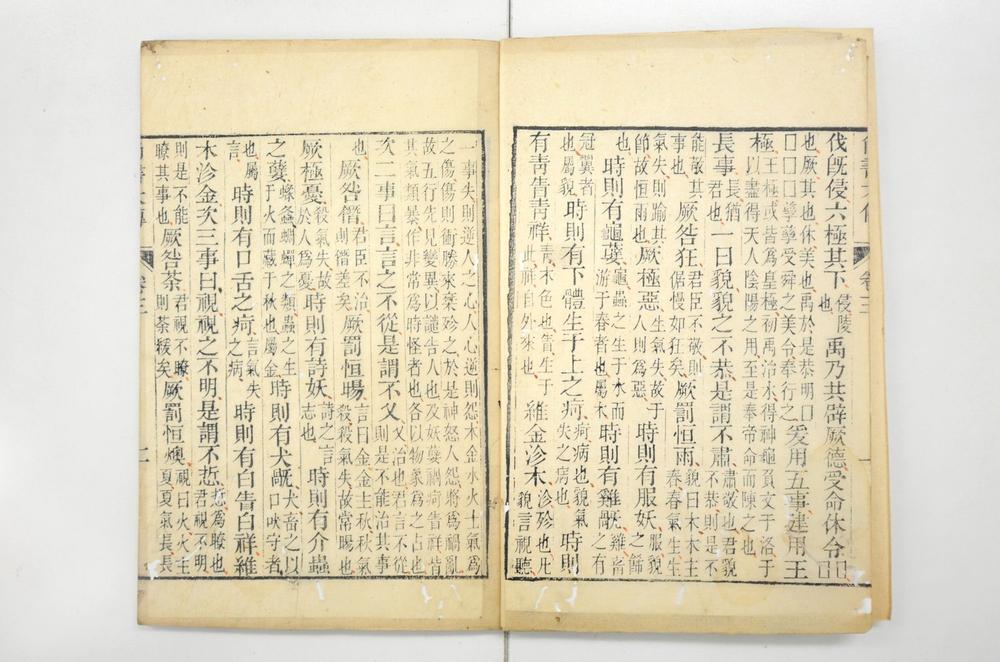 尚書大傳 卷三
伐旣侵六極其下侵陵也禹乃共辟厥德受命休令□□
也厥其也休美也禹於是恭明□□□□孳孳受舜之美令奉行之爰用五事建用王
極王極或皆爲皇極初禹治水得神龜負文于洛于以盡得天人陰陽之用至是奉帝命而陳之也
長事長猶君也一曰貌貌之不恭是謂不肅肅敬也君貌不恭則是不
能敬其事也厥咎狂君臣不敬則倨慢如狂矣厥罰恒雨貌曰木木主春春氣生生
氣失則踰其節故恒雨也厥極惡生氣失故于人則爲惡時則有服妖服貌之飾
也時則有龜孽龜蟲之生于水而游于春者也屬木時則有雞旤雞畜之有
冠翼者也屬貌時則有下體生于上之痾痾病也貌氣失之病也時則
有靑眚靑祥靑木色也眚生于此祥自外來也維金沴木沴殄也凡貌言視聽
一事失則逆人之心人心逆則怨木金水火土氣爲之傷傷則衝勝來乘殄之於是神怒人怨將爲禍亂
故五行先見變異以譴告人也及妖孽禍痾眚祥皆其氣類暴作非常爲時怪者也各以物象爲之占也
次二事曰言言之不從是謂不乂乂治也君言不從則是不能治其事
也厥咎僭君臣不治則僭差矣厥罰恒暘言曰金金主秋秋氣殺殺氣失故常暘也
厥極憂殺氣失故於人爲憂時則有詩妖詩之言志也時則有介蟲
之孽蝝螽蜩蟬之類蟲之生于火而藏于秋也屬金時則有犬旤犬畜之以口吠守者
也屬言時則有口舌之痾言氣失之病時則有白眚白祥維
木沴金次三事曰視視之不明是謂不悊悊爲瞭也君視不明
則是不能瞭其事也厥咎荼君視不瞭則荼緩矣厥罰恒燠視曰火火主夏夏氣長長
尚書大傳 卷三